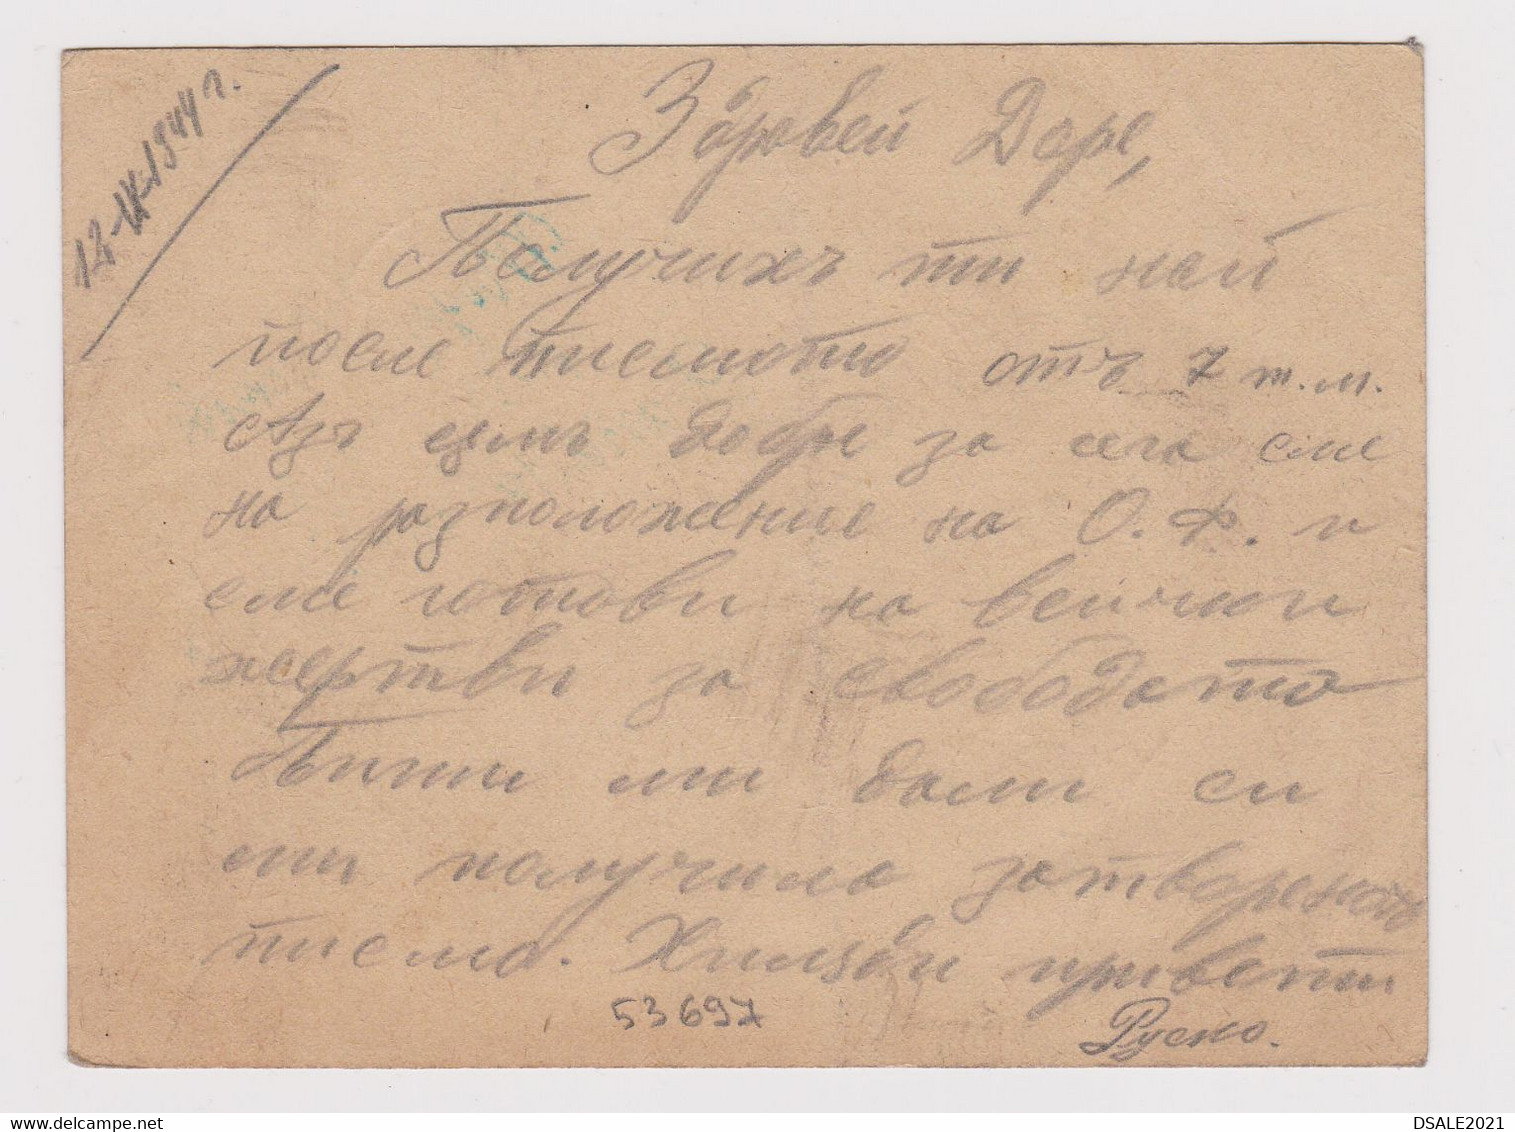 12-IX-1944 г.
Здравей Доре,
Получихъ ти най
после писмото отъ 7 т.м.
Азъ съмъ добре за сега сме
на разположение на О.Ф. и
сме готови на всички
жертви за свободата
Пиши ми дали си
ми получила затворено
писмо. Хиляди привети
Руско.
53697
DSALE2021